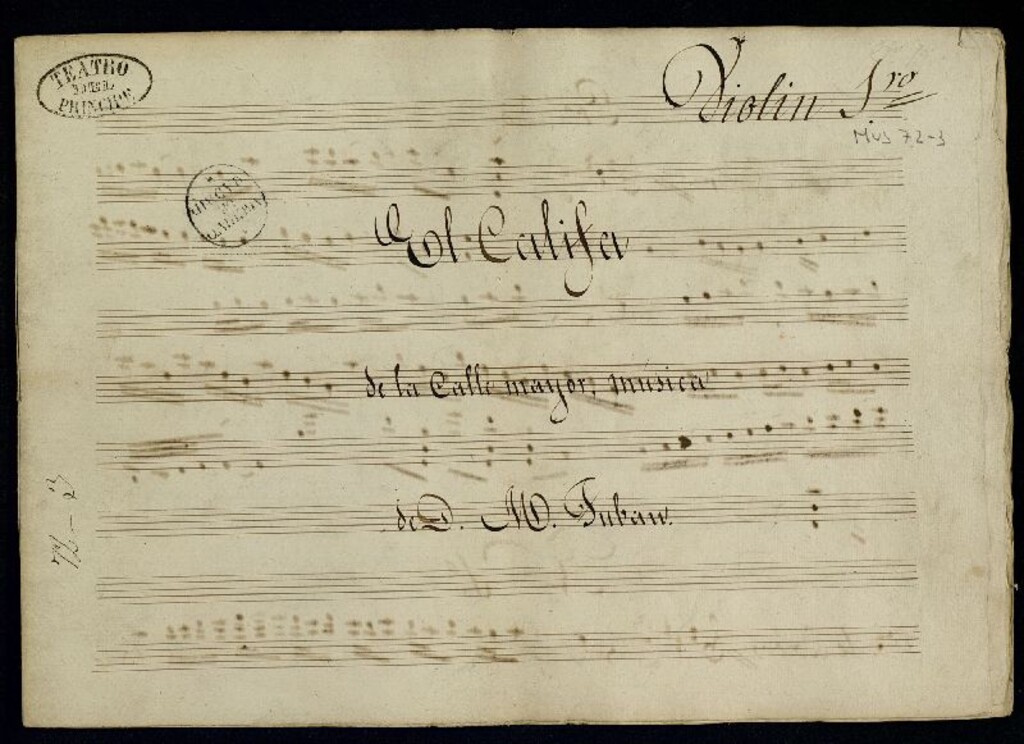 TEATRO
DEL
PRINCIPE
Violin 1ro
Mus 72-3
El Califa
de la Calle mayor, musica
de D. M. Tubau.
72-3